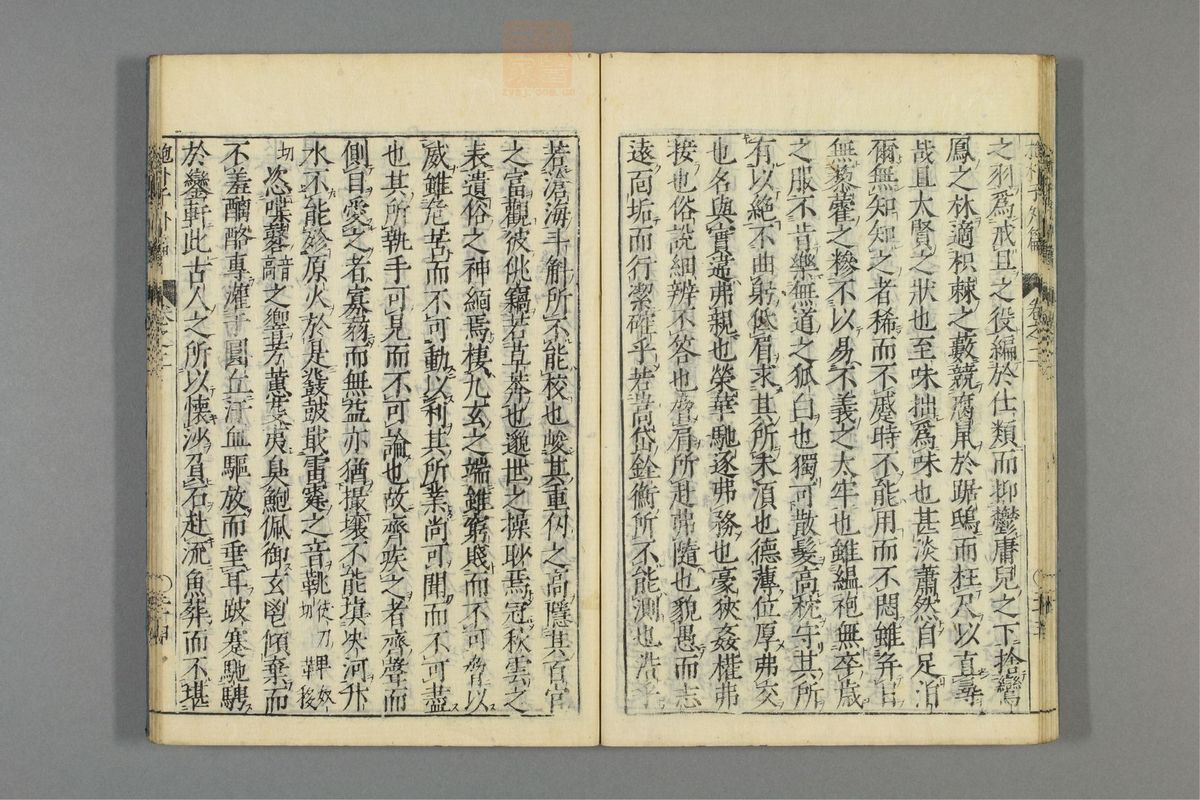 之羽爲戒旦之役編於仕類而抑鬱庸兒之下捨鸞
鳳之林適枳棘之藪競腐鼠於踞鴟而枉尺以直尋
哉且大賢之狀也至味拙爲味也甚淡蕭然自足
爾無知知之者稀而不慼時不能用而不悶雖并日
無藜藿之糝不以易不義之太牢也雖縕袍無卒歲
之服不肯樂無道之狐白也獨可散髮高枕守其所
有以絶不曲躬低眉求其所未須也德薄位厚弗交
也名與實違弗親也榮華馳逐弗務也豪俠姦權弗
接也俗說細辨不答也脅肩所赴弗隨也貌愚而志
遠面垢而行潔確乎若嵩岱銓衡所不能測也浩乎
若滄海斗斛所不能校也峻其重仞之高隱其百官
之富觀彼佻竊若草莽也邈世之操眇焉冠秋雲之
表遺俗之神緬焉棲九玄之端雖窮賤而不可脅以
威雖危苦而不可動以利其所業尚可聞而不可盡
也其所執手可見而不可論也故齊疾之者齊聲而
側目愛之者寡弱而無益亦猶撮壤不能塡决河升
水不能殄原火於是鼖鼓戢雷霆之音鞉徒刀切鞞奴後
切恣喋鼛音之響芳蕙芟夷臭鮑佩御玄鬯傾棄而
不羞醨酪專灌于圓丘汗血驅放而垂耳跛蹇馳騁
於鑾軒此古人之所以懷沙負石赴流魚葬而不堪
抱朴子外篇
卷之二